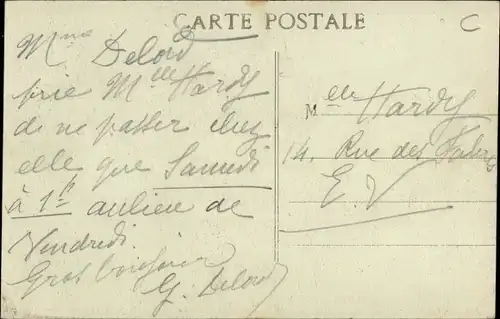 CARTE POSTALE
C
Mme Delord
prie Mlle Hardy
de ne passer chez
elle que Samedi
à 1h au lieu de
Vendredi.
Gros
G. Delord
Mlle Hardy
14, Rue des
E. V